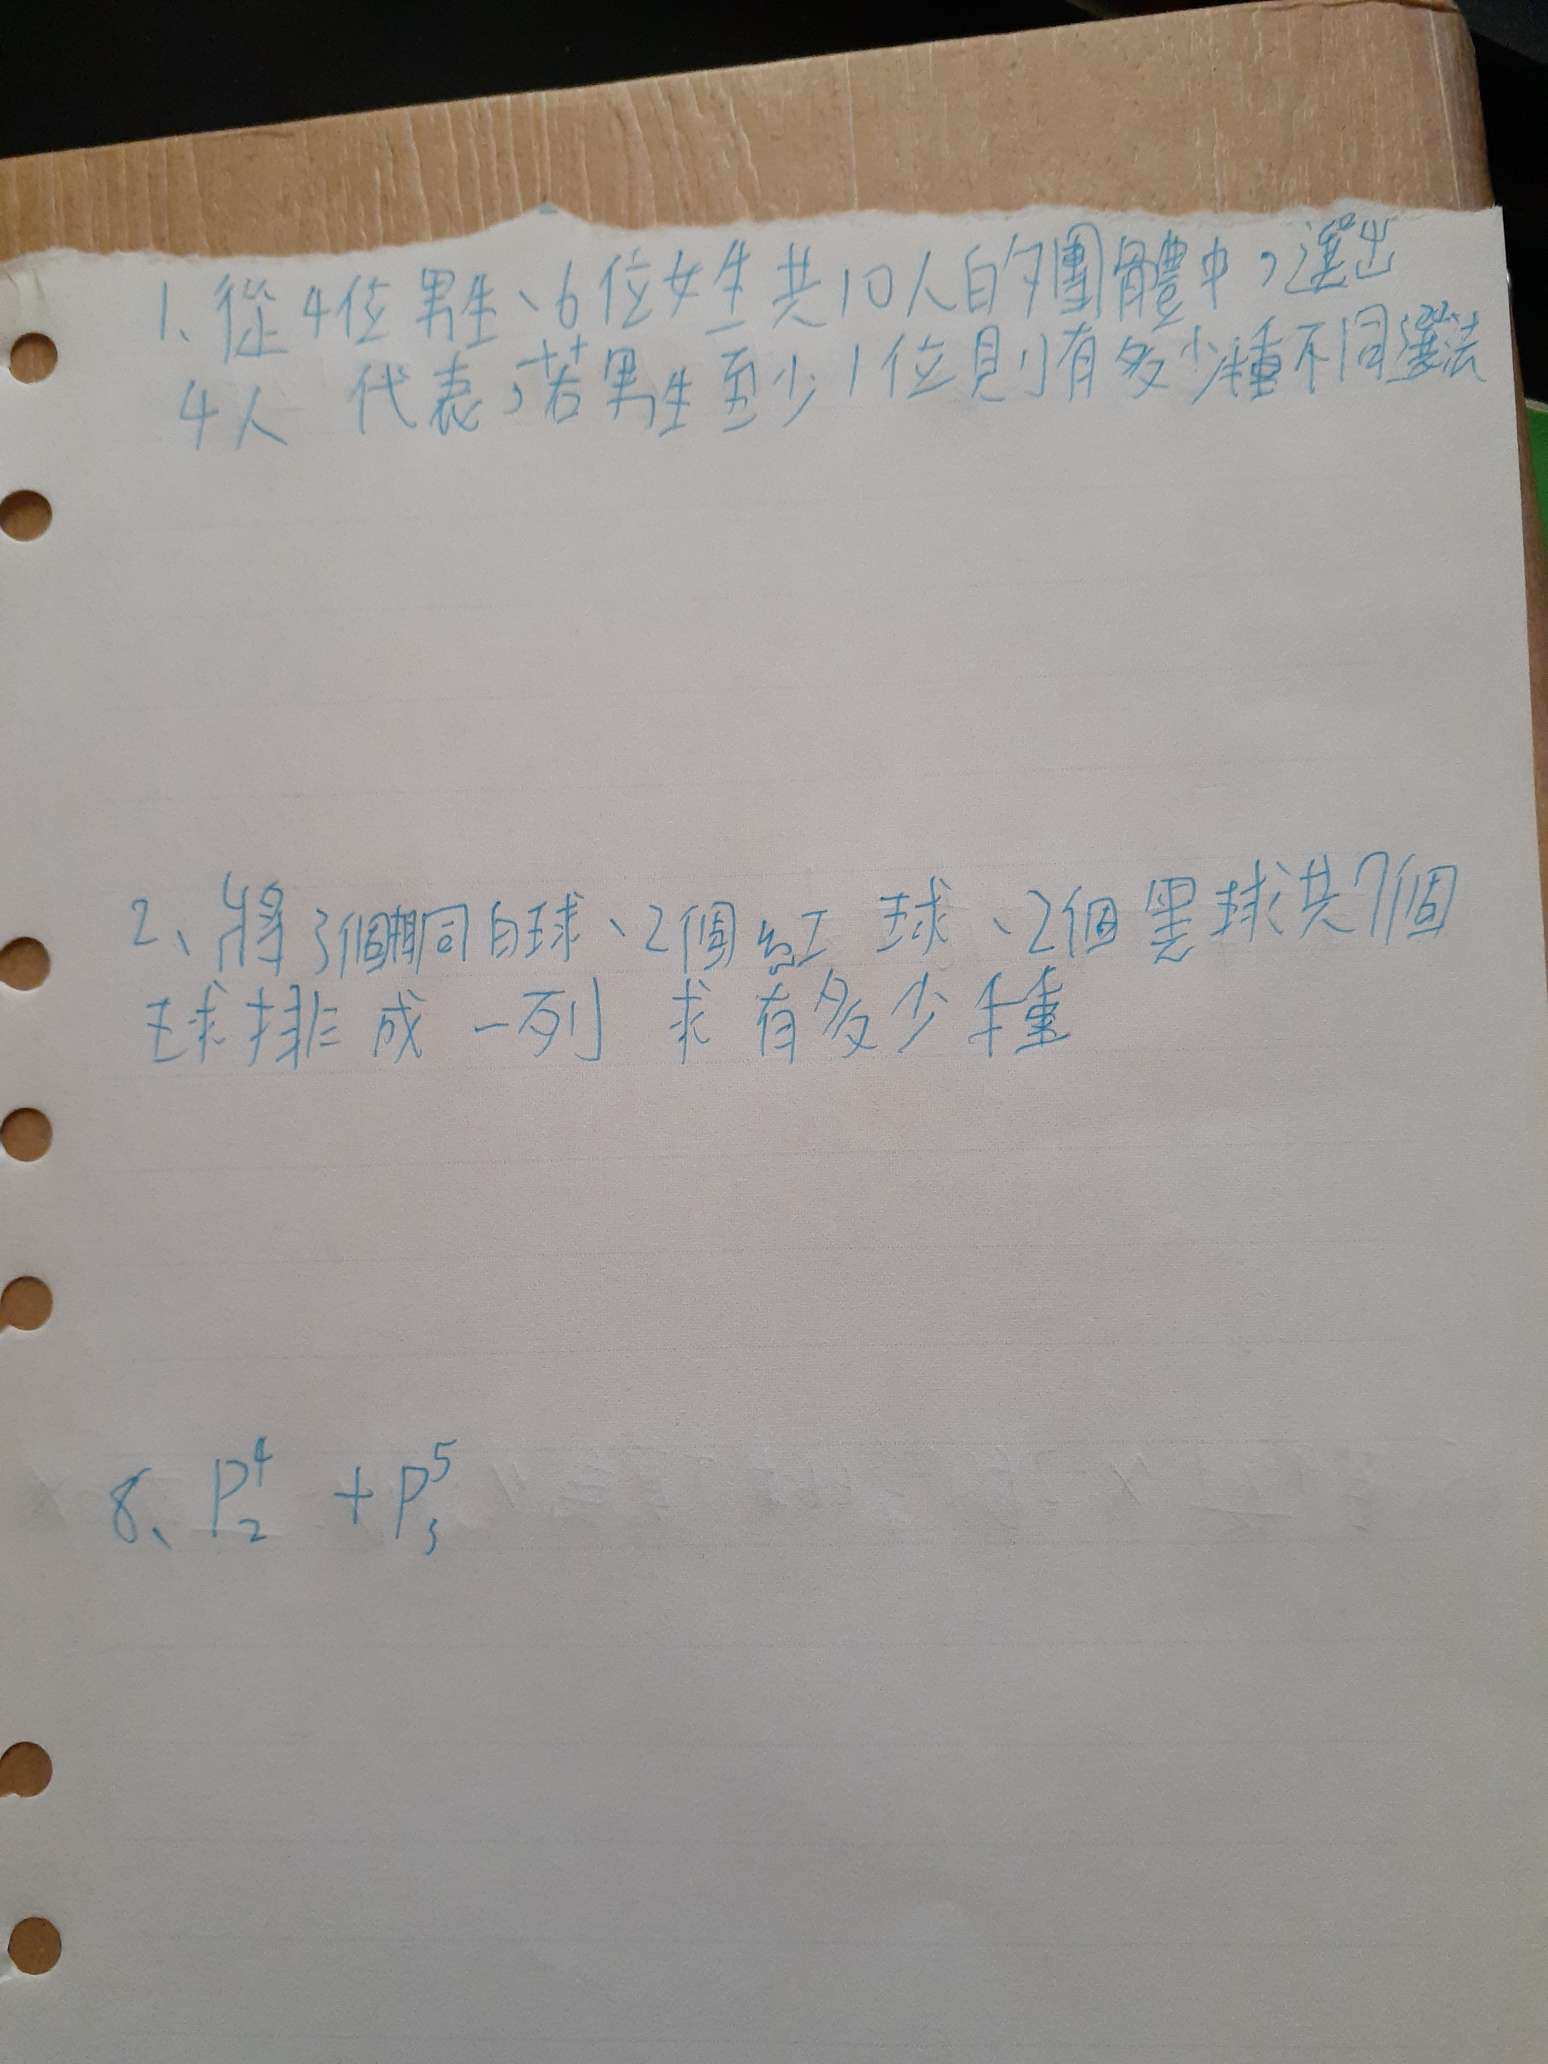 1、從4位男生、6位女生共10人的團體中，選出
4人 代表，若男生至少1位則有多少種不同選法
2、將3個相同白球、2個紅球、2個黑球共7個
球排成一列 求有多少種
8、P⁴₂ + P⁵₃